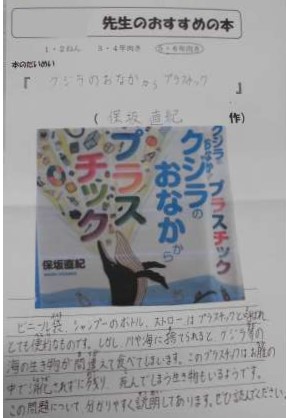 先生のおすすめの本
1・2ねん 3・4年向き 5・6年向き
本のだいめい
『 クジラのおなかからプラスチック 』
( 保坂 直紀 作)
クジラのおなかから プラスチック
クジラの
おなか
から
プラス
チック
保坂直紀
ビニール袋、シャンプーのボトル、ストローはプラスチックと呼ばれ
とても便利なものです。しかし、川や海に捨てられると、クジラ等の
海の生き物が間違えて食べてしまいます。このプラスチックはお腹の
中で消化されずに残り、死んでしまう生き物もいるようです。
この問題について分かりやすく説明してあります。ぜひ読んでください。